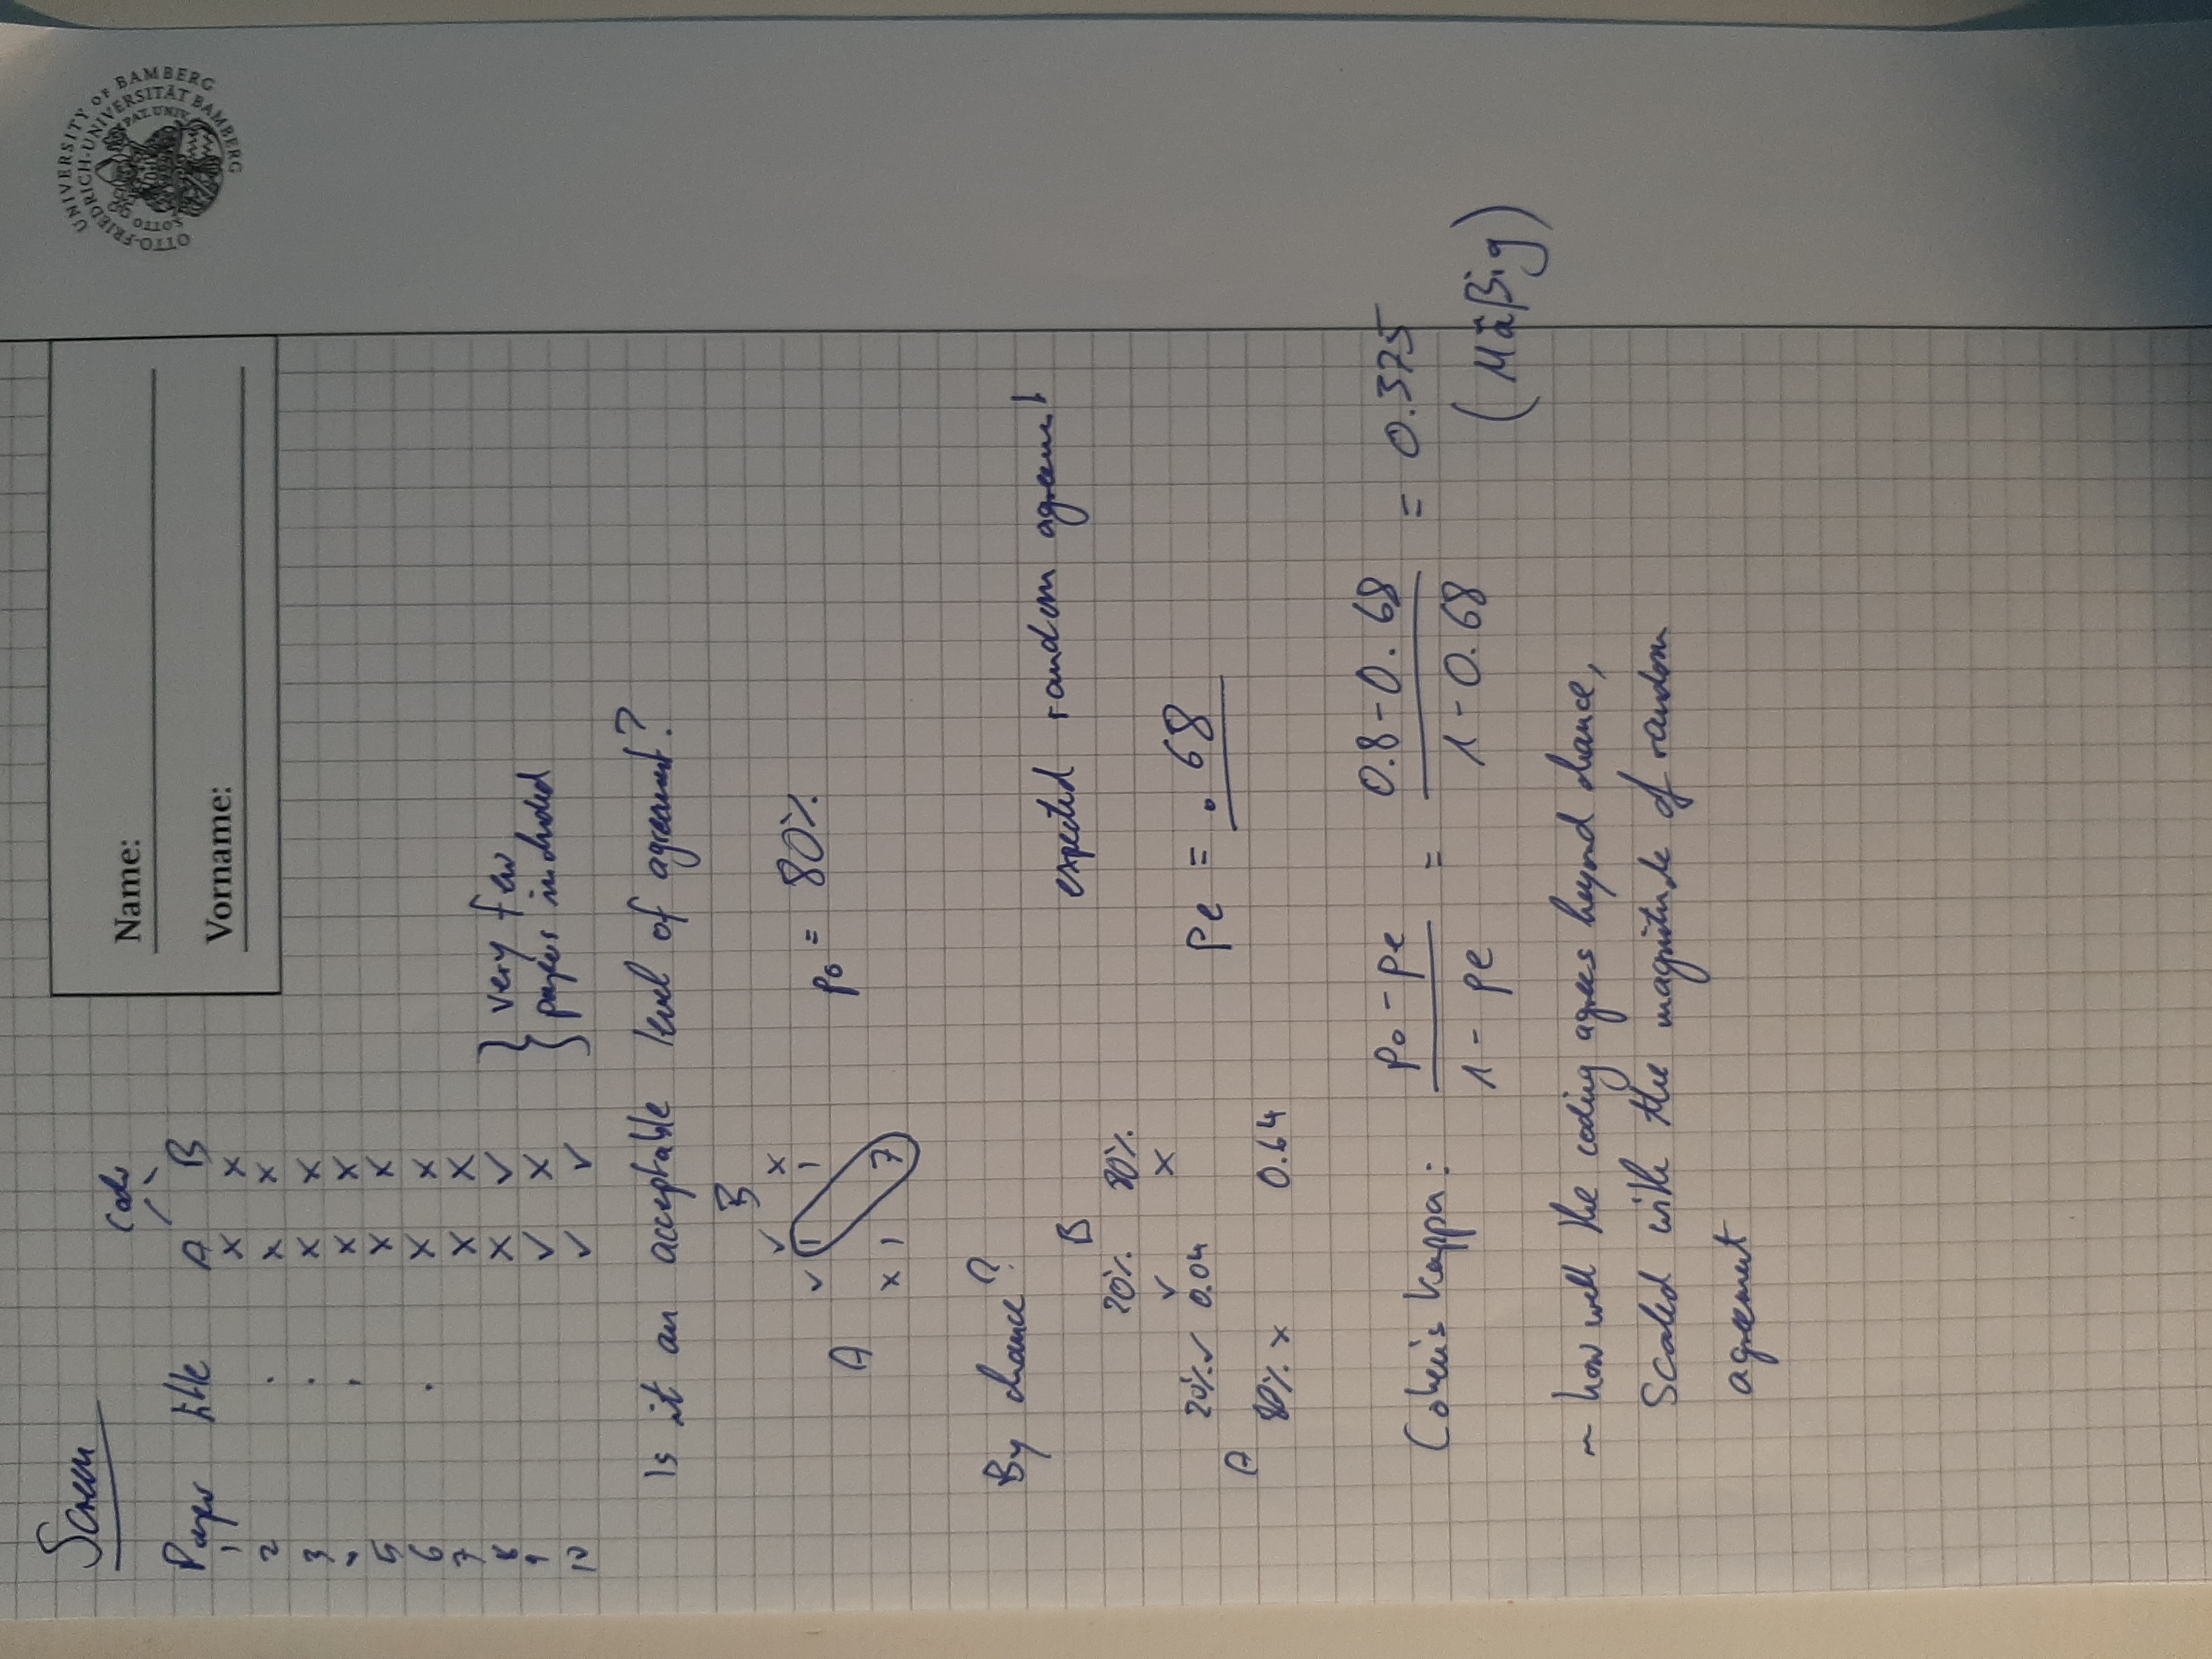 UNIVERSITY OF BAMBERG
OTTO-FRIEDRICH-UNIVERSITÄT BAMBERG
Name:
Vorname:
Screen
Paper title A B
1 x x
2 . x x
3 . x x
4 . x x
5 x x
6 . x x
7 x x
8 x ✓ } very few
9 ✓ x } papers included
10 ✓ ✓
Is it an acceptable level of agreement?
B
✓ x
✓ 1 1 po = 80%
A
x 1 7
By chance? expected random agreement
B
20% 80%
✓ x
20% ✓ 0.04 pe = .68
A
80% x 0.64
Cohen's Kappa: po - pe / 1 - pe = 0.8 - 0.68 / 1 - 0.68 = 0.375
(Mäßig)
~ how well the coding agrees beyond chance,
Scaled with the magnitude of random
agreement